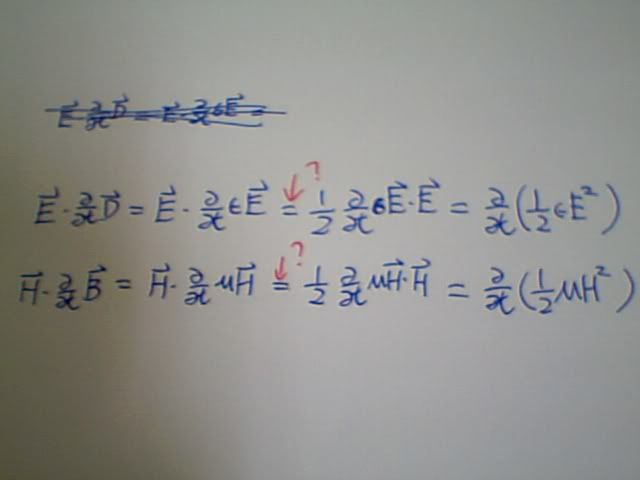 E⃗ ∂/∂t D⃗ = E⃗ · ∂/∂t ϵE⃗ =
?
E⃗ · ∂/∂t D⃗ = E⃗ · ∂/∂t ϵE⃗ = 1/2 ∂/∂t ϵE⃗ · E⃗ = ∂/∂t (1/2 ϵE²)
?
H⃗ · ∂/∂t B⃗ = H⃗ · ∂/∂t μH⃗ = 1/2 ∂/∂t μH⃗ · H⃗ = ∂/∂t (1/2 μH²)